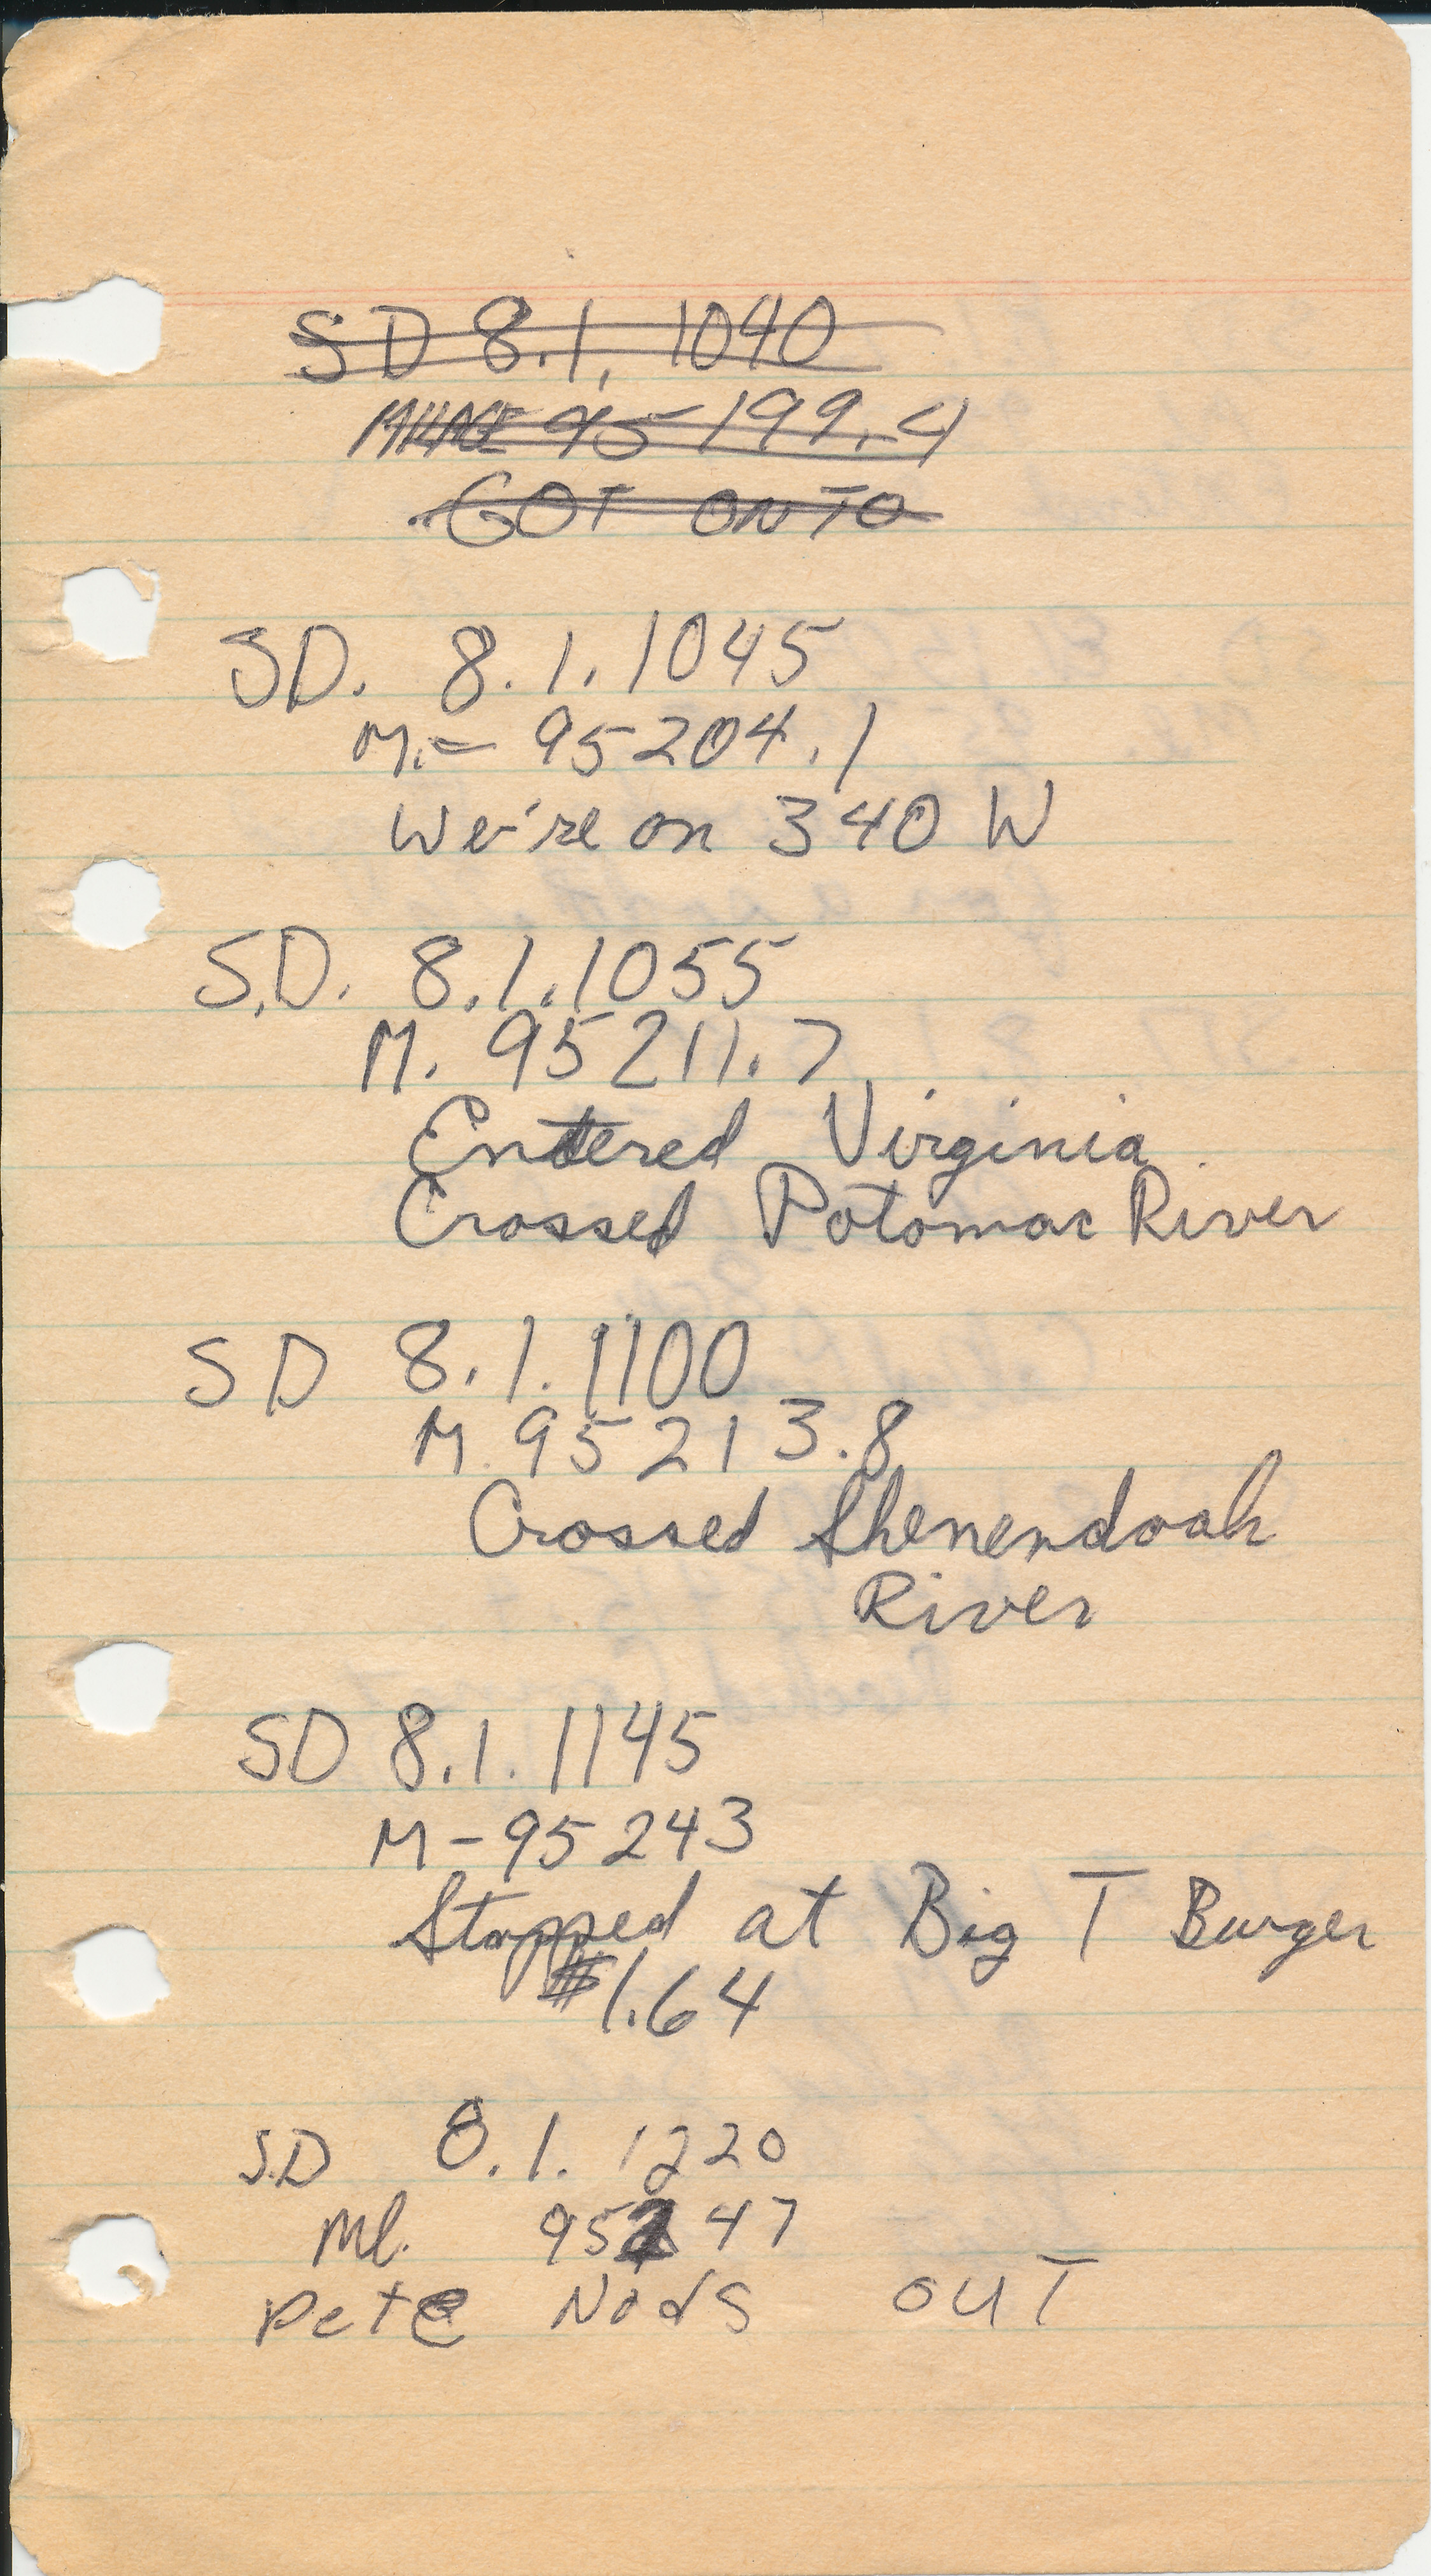 SD 8.1. 1040
MILAGE 95199.4
GOT ONTO
SD. 8.1.1045
M.- 95204.1
We're on 340 W
S.D. 8.1.1055
M. 95211.7
Entered Virginia.
Crossed Potomac River
SD 8.1.1100
M. 95213.8
Crossed Shenendoah
River
SD 8.1.1145
M-95243
Stopped at Big T Burger
$1.64
S.D 8.1. 1220
Ml. 95247
Pete Nods OUT